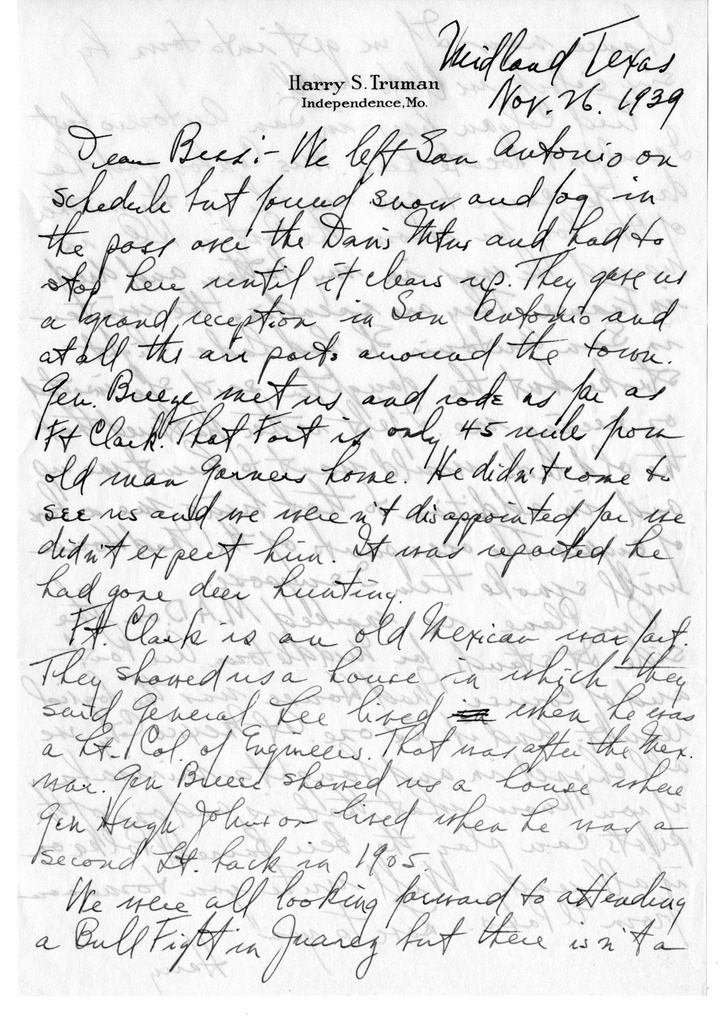 Midland Texas
Harry S. Truman
Independence, Mo.
Nov. 26. 1939
Dear Bess:- We left San Antonio on
schedule but found snow and fog in
the pass over the Davis Mtns and had to
stop here until it clears up. They gave us
a grand reception in San Antonio and
at all the air ports around the town.
Gen. Breeze met us and rode as far as
Ft Clark. That Fort is only 45 miles from
old man Garners home. He didn't come to
see us and we weren't disappointed for we
didn't expect him. It was reported he
had gone deer hunting.
Ft. Clark is an old Mexican war fort.
They showed us a house in which they
said General Lee lived in when he was
a Lt. Col. of Engineers. That was after the Mex.
war. Gen Breeze showed us a house where
Gen Hugh Johnson lived when he was a
second Lt. back in 1905.
We were all looking forward to attending
a Bull Fight in Juarez but there isn't a